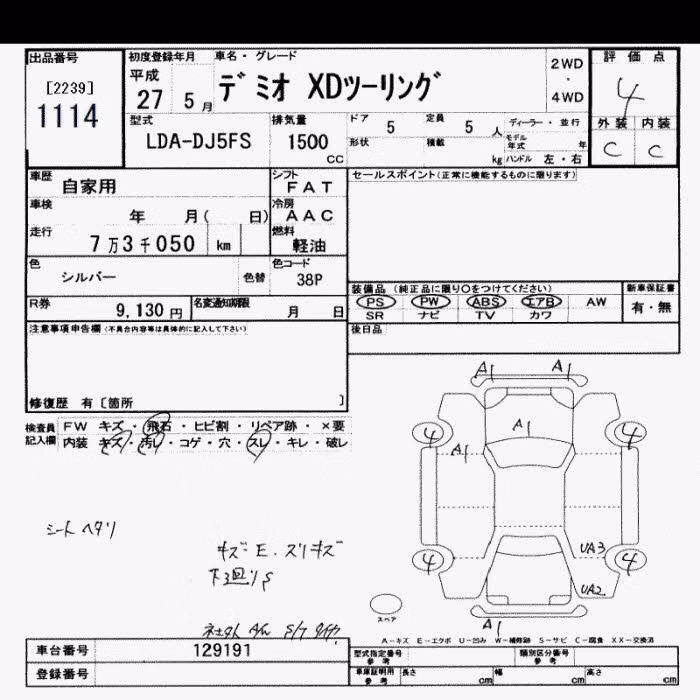 出品番号
[2239]
1114
初度登録年月
平成
27 5月
車名・グレード
デミオ XDツーリング
2WD
・
4WD
評価点
4
外装 内装
C C
型式
LDA-DJ5FS
排気量
1500
CC
ドア 5
定員 5 人
ディーラー・並行
形状
積載 kg
モデル年式 年
ハンドル 左・右
車歴 自家用
シフト
FAT
車検 年 月( 日)
冷房
AAC
走行 7万3千050 km
燃料
軽油
色 シルバー 色替
色コード
38P
R券 9,130円
名変通知期限 月 日
セールスポイント(正常に機能するものに限ります)
装備品 (純正品に限り○をつけてください)
PS PW ABS エアB AW
SR ナビ TV カワ
新車保証書
有・無
後日品
注意事項申告欄(不具合内容等は具体的に記入して下さい)
修復歴 有〔箇所 〕
検査員
記入欄
FW キズ・飛石・ヒビ割・リペア跡・×要
内装 キズ・汚レ・コゲ・穴・スレ・キレ・破レ
A1 A1
A1
A1
4 4
4 4
UA3
UA2
A1
スペア
シート ヘタリ
キズ E. スリキズ
下回り S
A-キズ E-エクボ U-凹み W-補修跡 S-サビ C-腐食 XX-交換済
車台番号 129191
登録番号
型式指定番号
参考
類別区分番号
参考
車庫証明用
参考
長さ cm 幅 cm 高さ cm